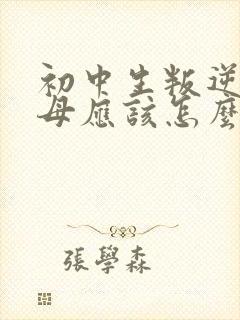 初中生叛逆
母應該怎麼
張學森